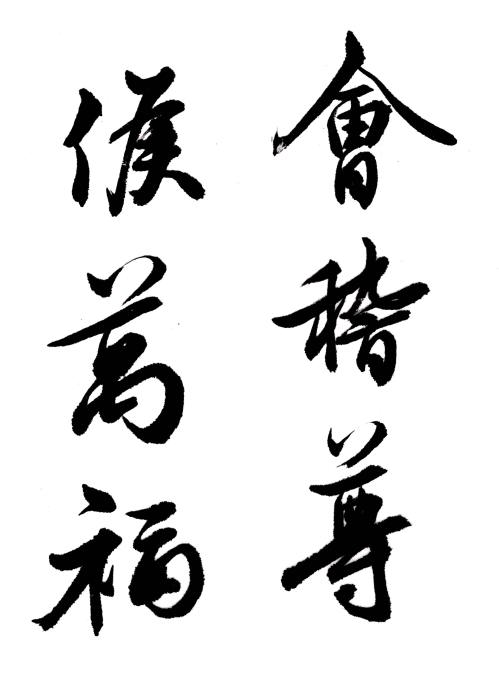 會稽尊
候萬福